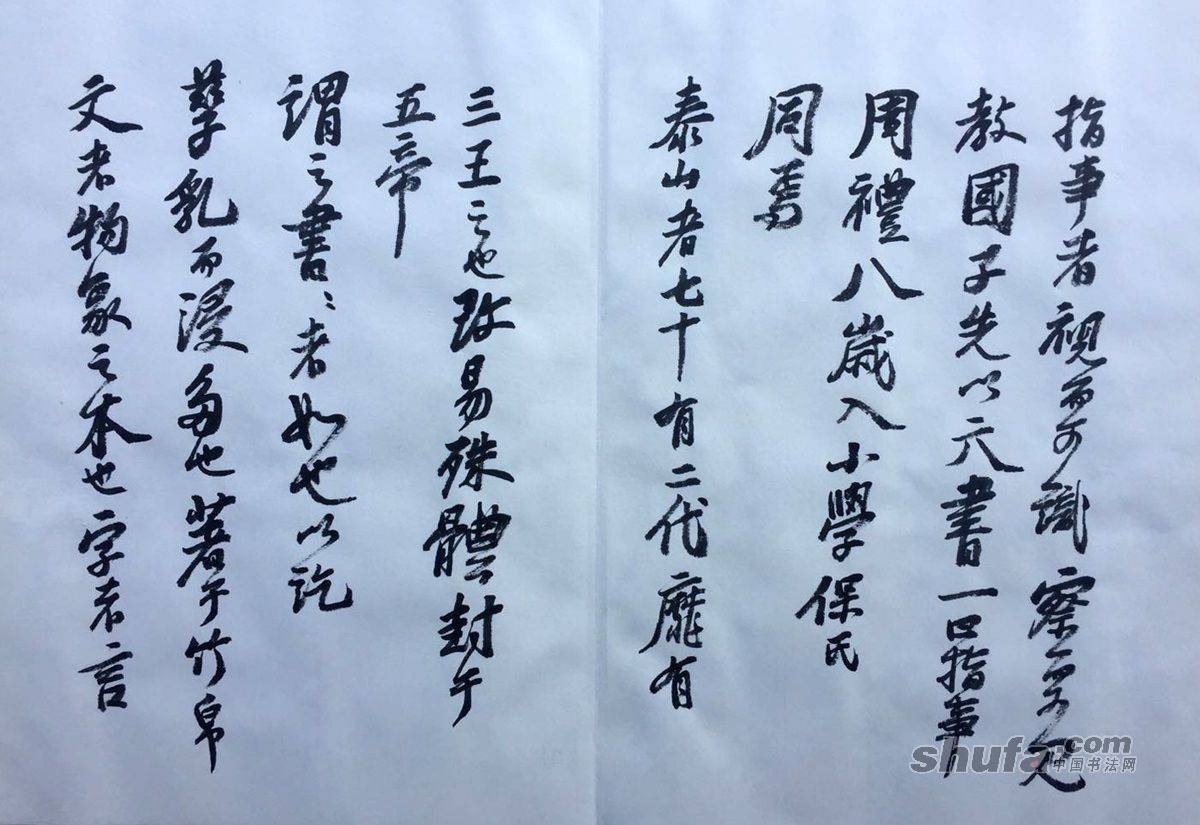 文者物象之本也字者言
孳乳而浸多也著于竹帛
謂之書〻者如也以訖
五帝
三王之世改易殊體封于
泰山者七十有二代靡有
同焉
周禮八歲入小學保氏
教國子先以六書一曰指事
指事者視而可識察而可見
shufa.com
中国书法网